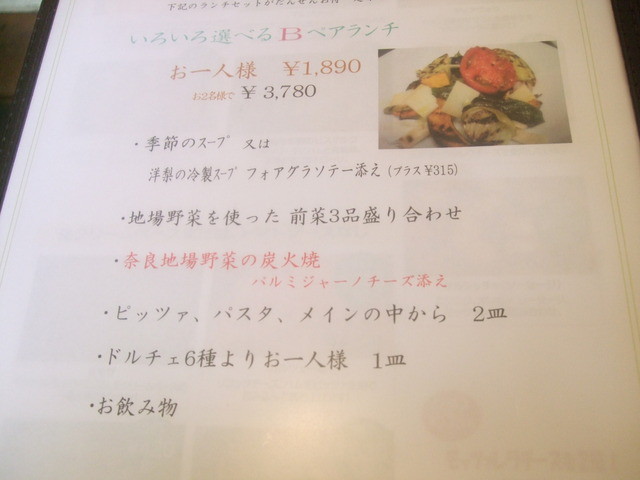 下記のランチセットがだんぜんお得
いろいろ選べる B ペアランチ
お一人様 ￥1,890
お2名様で ￥3,780
・季節のｽｰﾌﾟ 又は
洋梨の冷製ｽｰﾌﾟ フォアグラソテー添え (プラス¥315)
・地場野菜を使った 前菜3品盛り合わせ
・奈良地場野菜の炭火焼
パルミジャーノチーズ添え
・ピッツァ、パスタ、メインの中から 2皿
・ドルチェ6種よりお一人様 1皿
・お飲み物